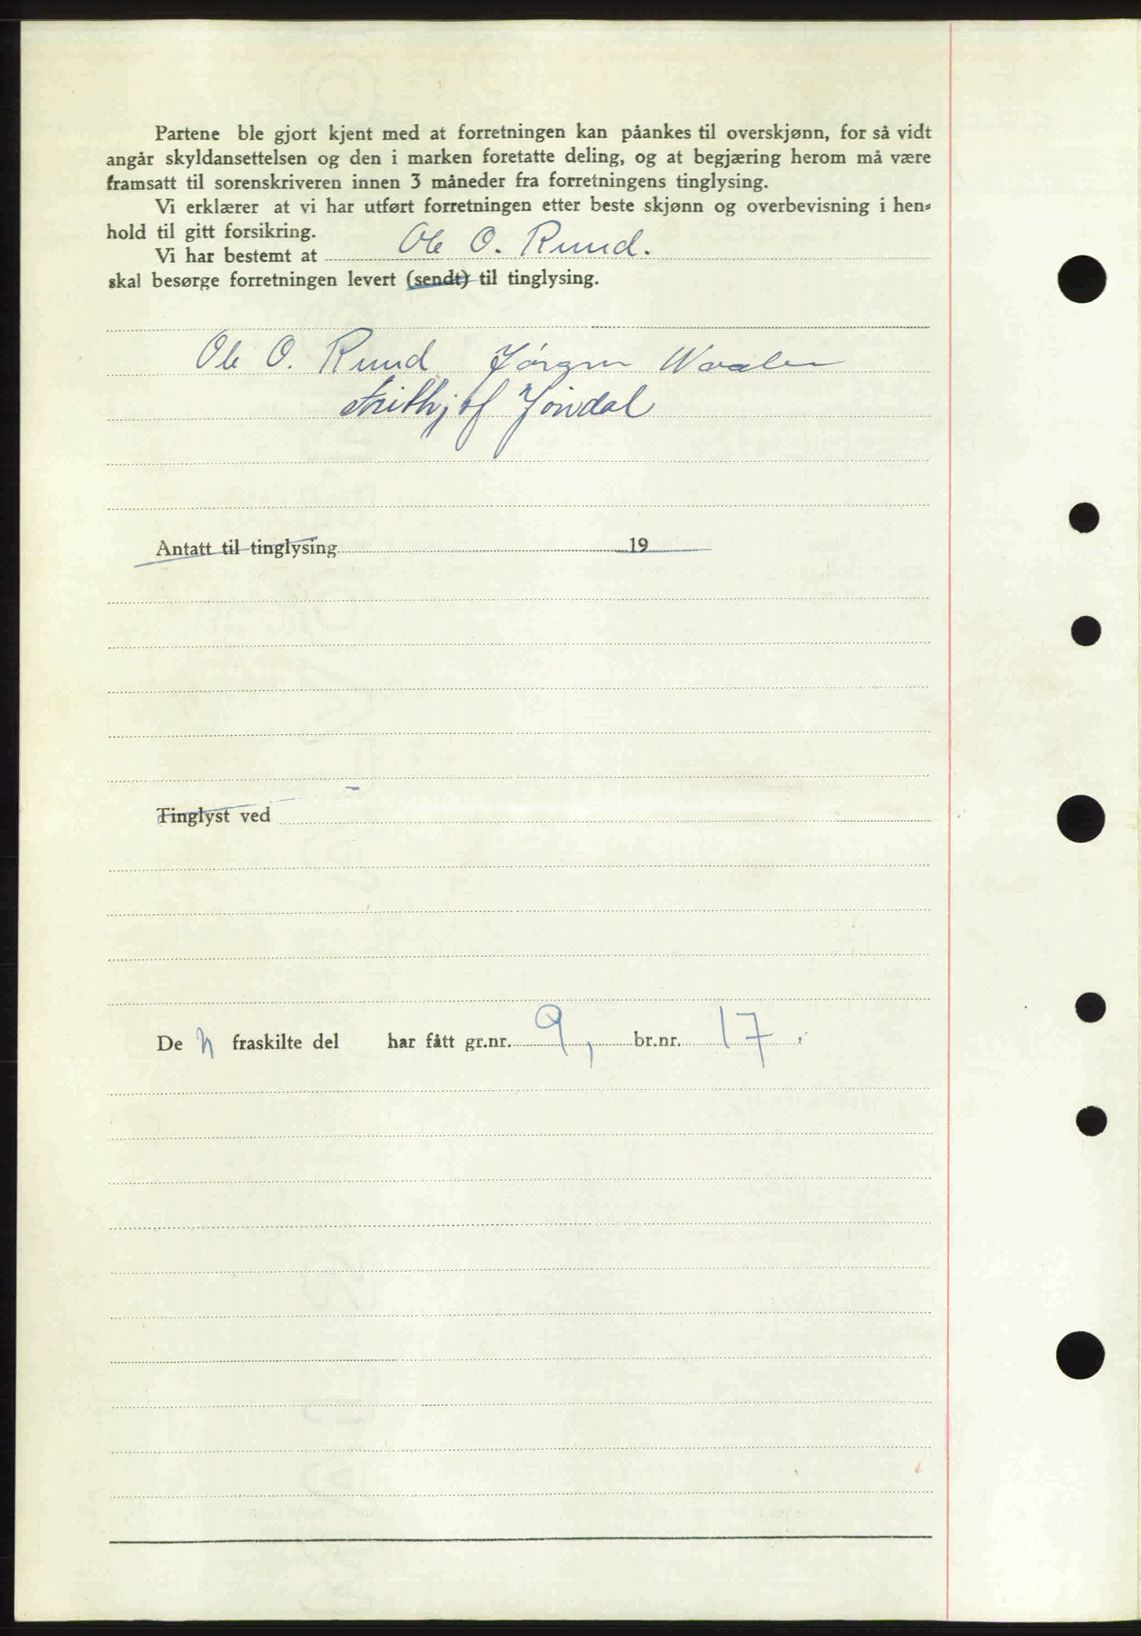 Partene ble gjort kjent med at forretningen kan påankes til overskjønn, for så vidt
angår skyldansettelsen og den i marken foretatte deling, og at begjæring herom må være
framsatt til sorenskriveren innen 3 måneder fra forretningens tinglysing.
Vi erklærer at vi har utført forretningen etter beste skjønn og overbevisning i hen-
hold til gitt forsikring.
Vi har bestemt at Ole O. Ruud.
skal besørge forretningen levert (sendt) til tinglysing.
Ole O. Ruud Jörgen Waaler
Frithjof Jöndal
Antatt til tinglysing 19
Tinglyst ved
De n fraskilte del har fått gr.nr. 9, br.nr. 17.